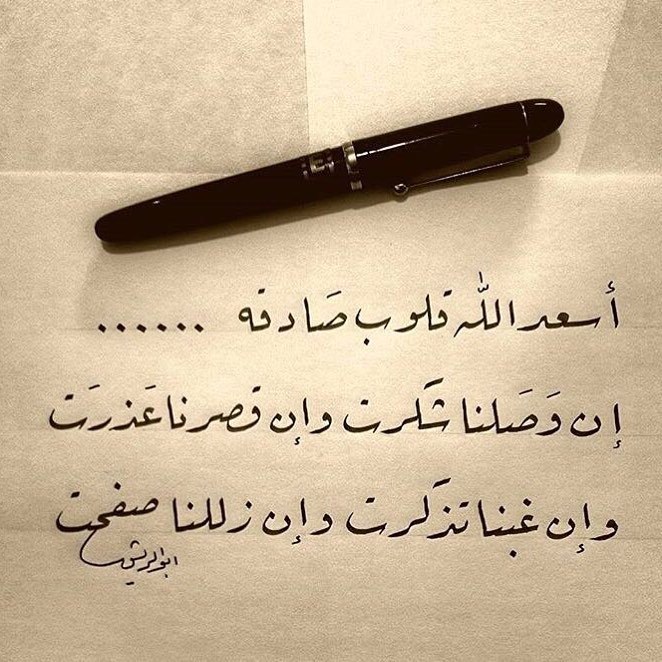 أسعد الله قلوب صَادقه ......
إن وَصَلنا شكرت وإن قصرنا عَذرَت
وإن غبنا تذكرت وإن زللنا صفحت
ابو الريش